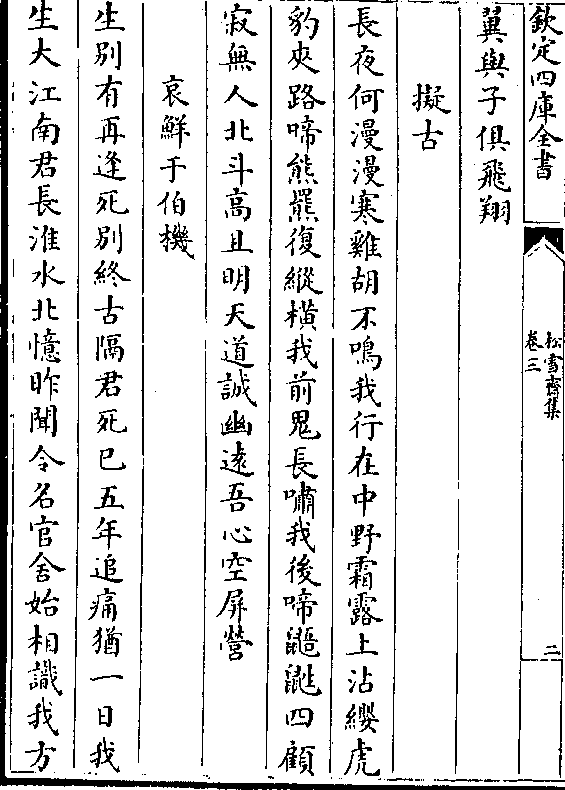 欽定四庫全書
松雪齋集
卷三
二
翼與子俱飛翔
擬古
長夜何漫漫寒雞胡不鳴我行在中野霜露上沾纓虎
豹夾路啼熊羆復縱橫我前鬼長嘯我後啼鼯鼪四顧
寂無人北斗高且明天道誠幽逺吾心空屏營
哀鮮于伯機
生别有再逢死别終古隔君死已五年追痛猶一日我
生大江南君長淮水北憶昨聞令名官舍始相識我方